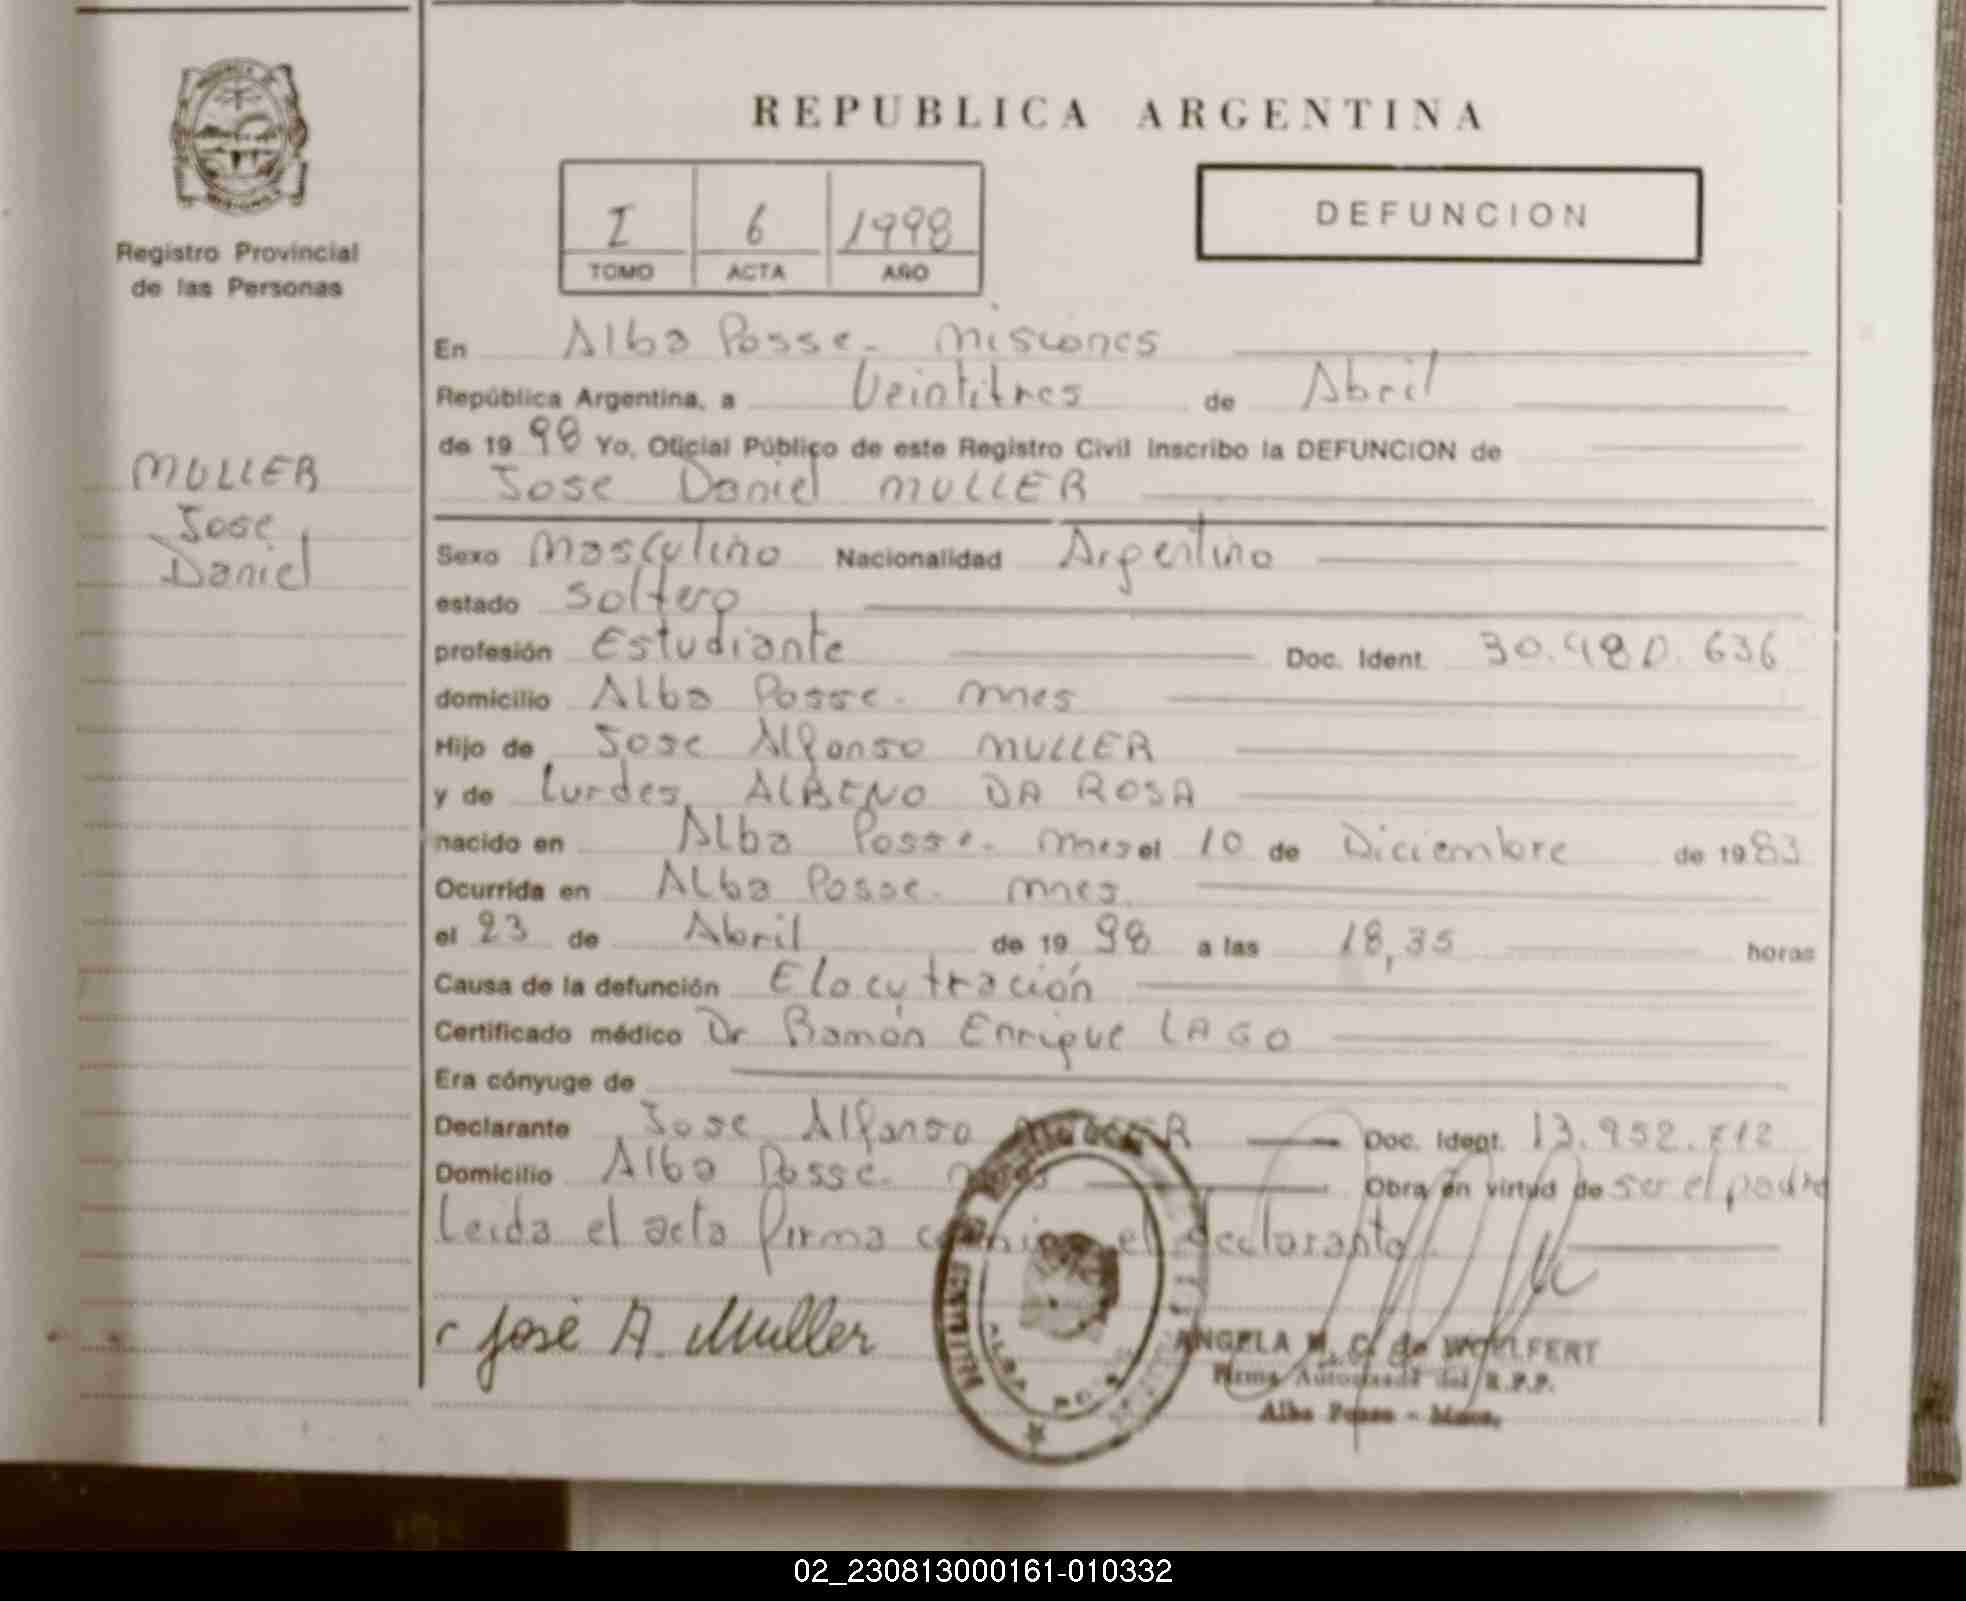 REPUBLICA ARGENTINA
Registro Provincial
de las Personas
I 6 1998
TOMO ACTA AÑO
DEFUNCION
MULLER
Jose
Daniel
En Alba Posse - Misiones
República Argentina, a Veintitres de Abril
de 19 98 Yo, Oficial Público de este Registro Civil Inscribo la DEFUNCION de
Jose Daniel MULLER
Sexo Masculino Nacionalidad Argentino
estado Soltero
profesión Estudiante Doc. Ident. 30.480.636
domicilio Alba Posse - Mnes
Hijo de Jose Alfonso MULLER
y de Lurdes ALBENO DA ROSA
nacido en Alba Posse - Mnes el 10 de Diciembre de 19 83
Ocurrida en Alba Posse - Mnes.
el 23 de Abril de 19 98 a las 18,35 horas
Causa de la defunción Elocutración
Certificado médico Dr Ramón Enrique LAGO
Era cónyuge de
Declarante Jose Alfonso MULLER Doc. Ident. 13.952.712
Domicilio Alba Posse - Mnes Obra en virtud de ser el padre
Leida el acta firma conmigo el declarante
José A. Muller
ANGELA M. C. de WOELFERT
Firma Autorizada del R.P.P.
Alba Posse - Mnes.
02_230813000161-010332